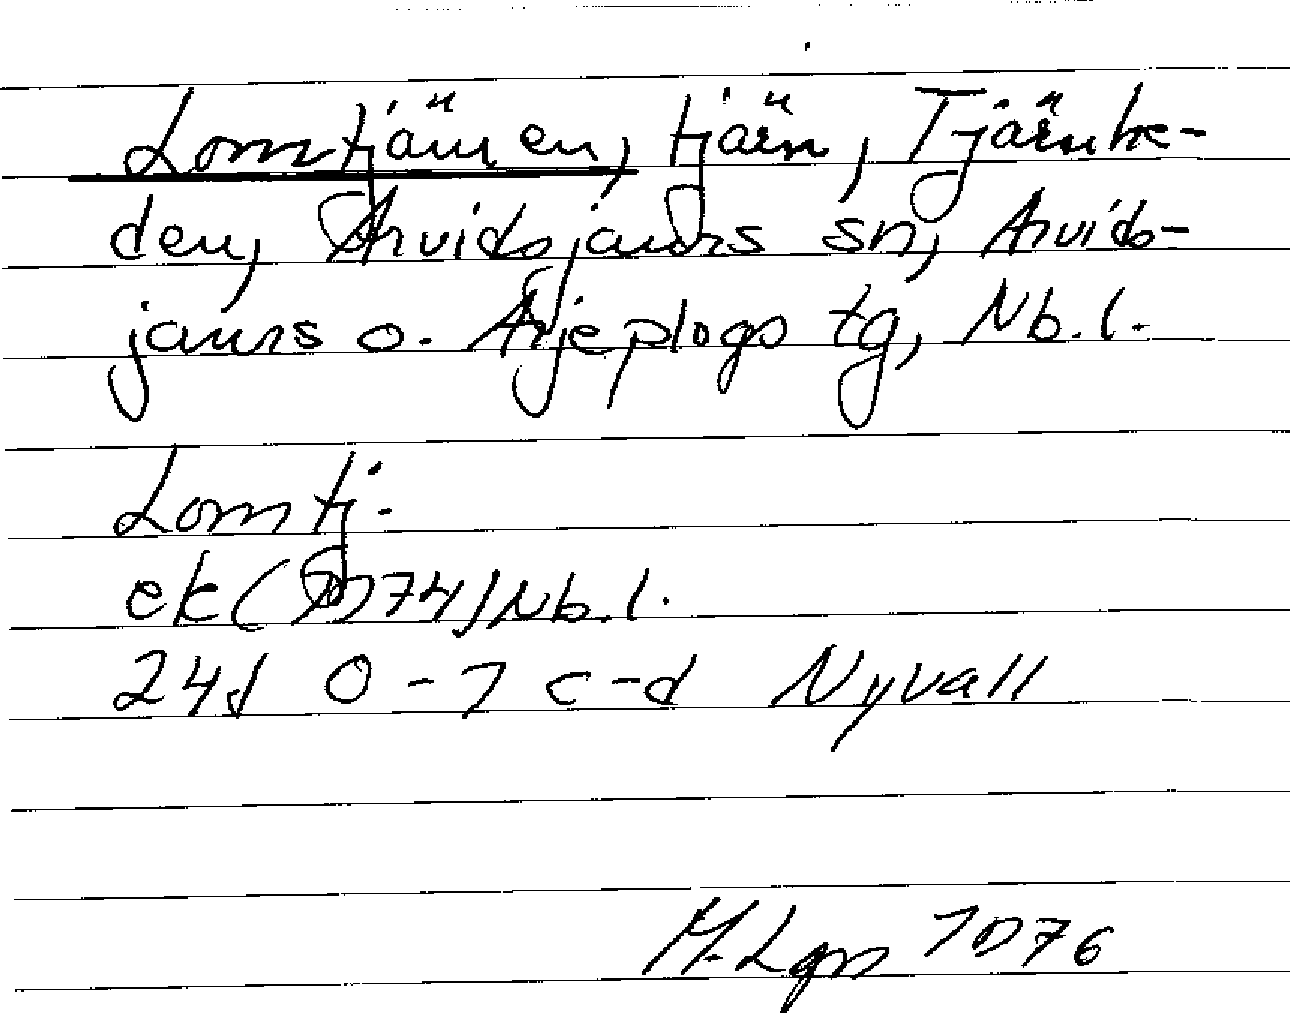 Lomtjärnen, tjärn, Tjärnhe-
den, Arvidsjaurs sn, Arvids-
jaurs o. Arjeplogs tg, Nb. l.
Lomtj.
ek (1974) Nb. l.
24J 0-1 c-d Nyvall
M. Lgn 1976